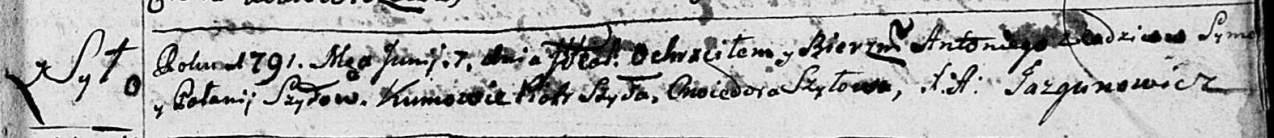 Szyło
Roku 1791. Mca Junij. 7. dnia Ochrzciłem y Bierzm Antoniego z Rodzicow Syme
y Połanij Szyłow. Kumowie Piotr Szyła, Chwiedora Szyłowa, J. A. Jazgunowicz